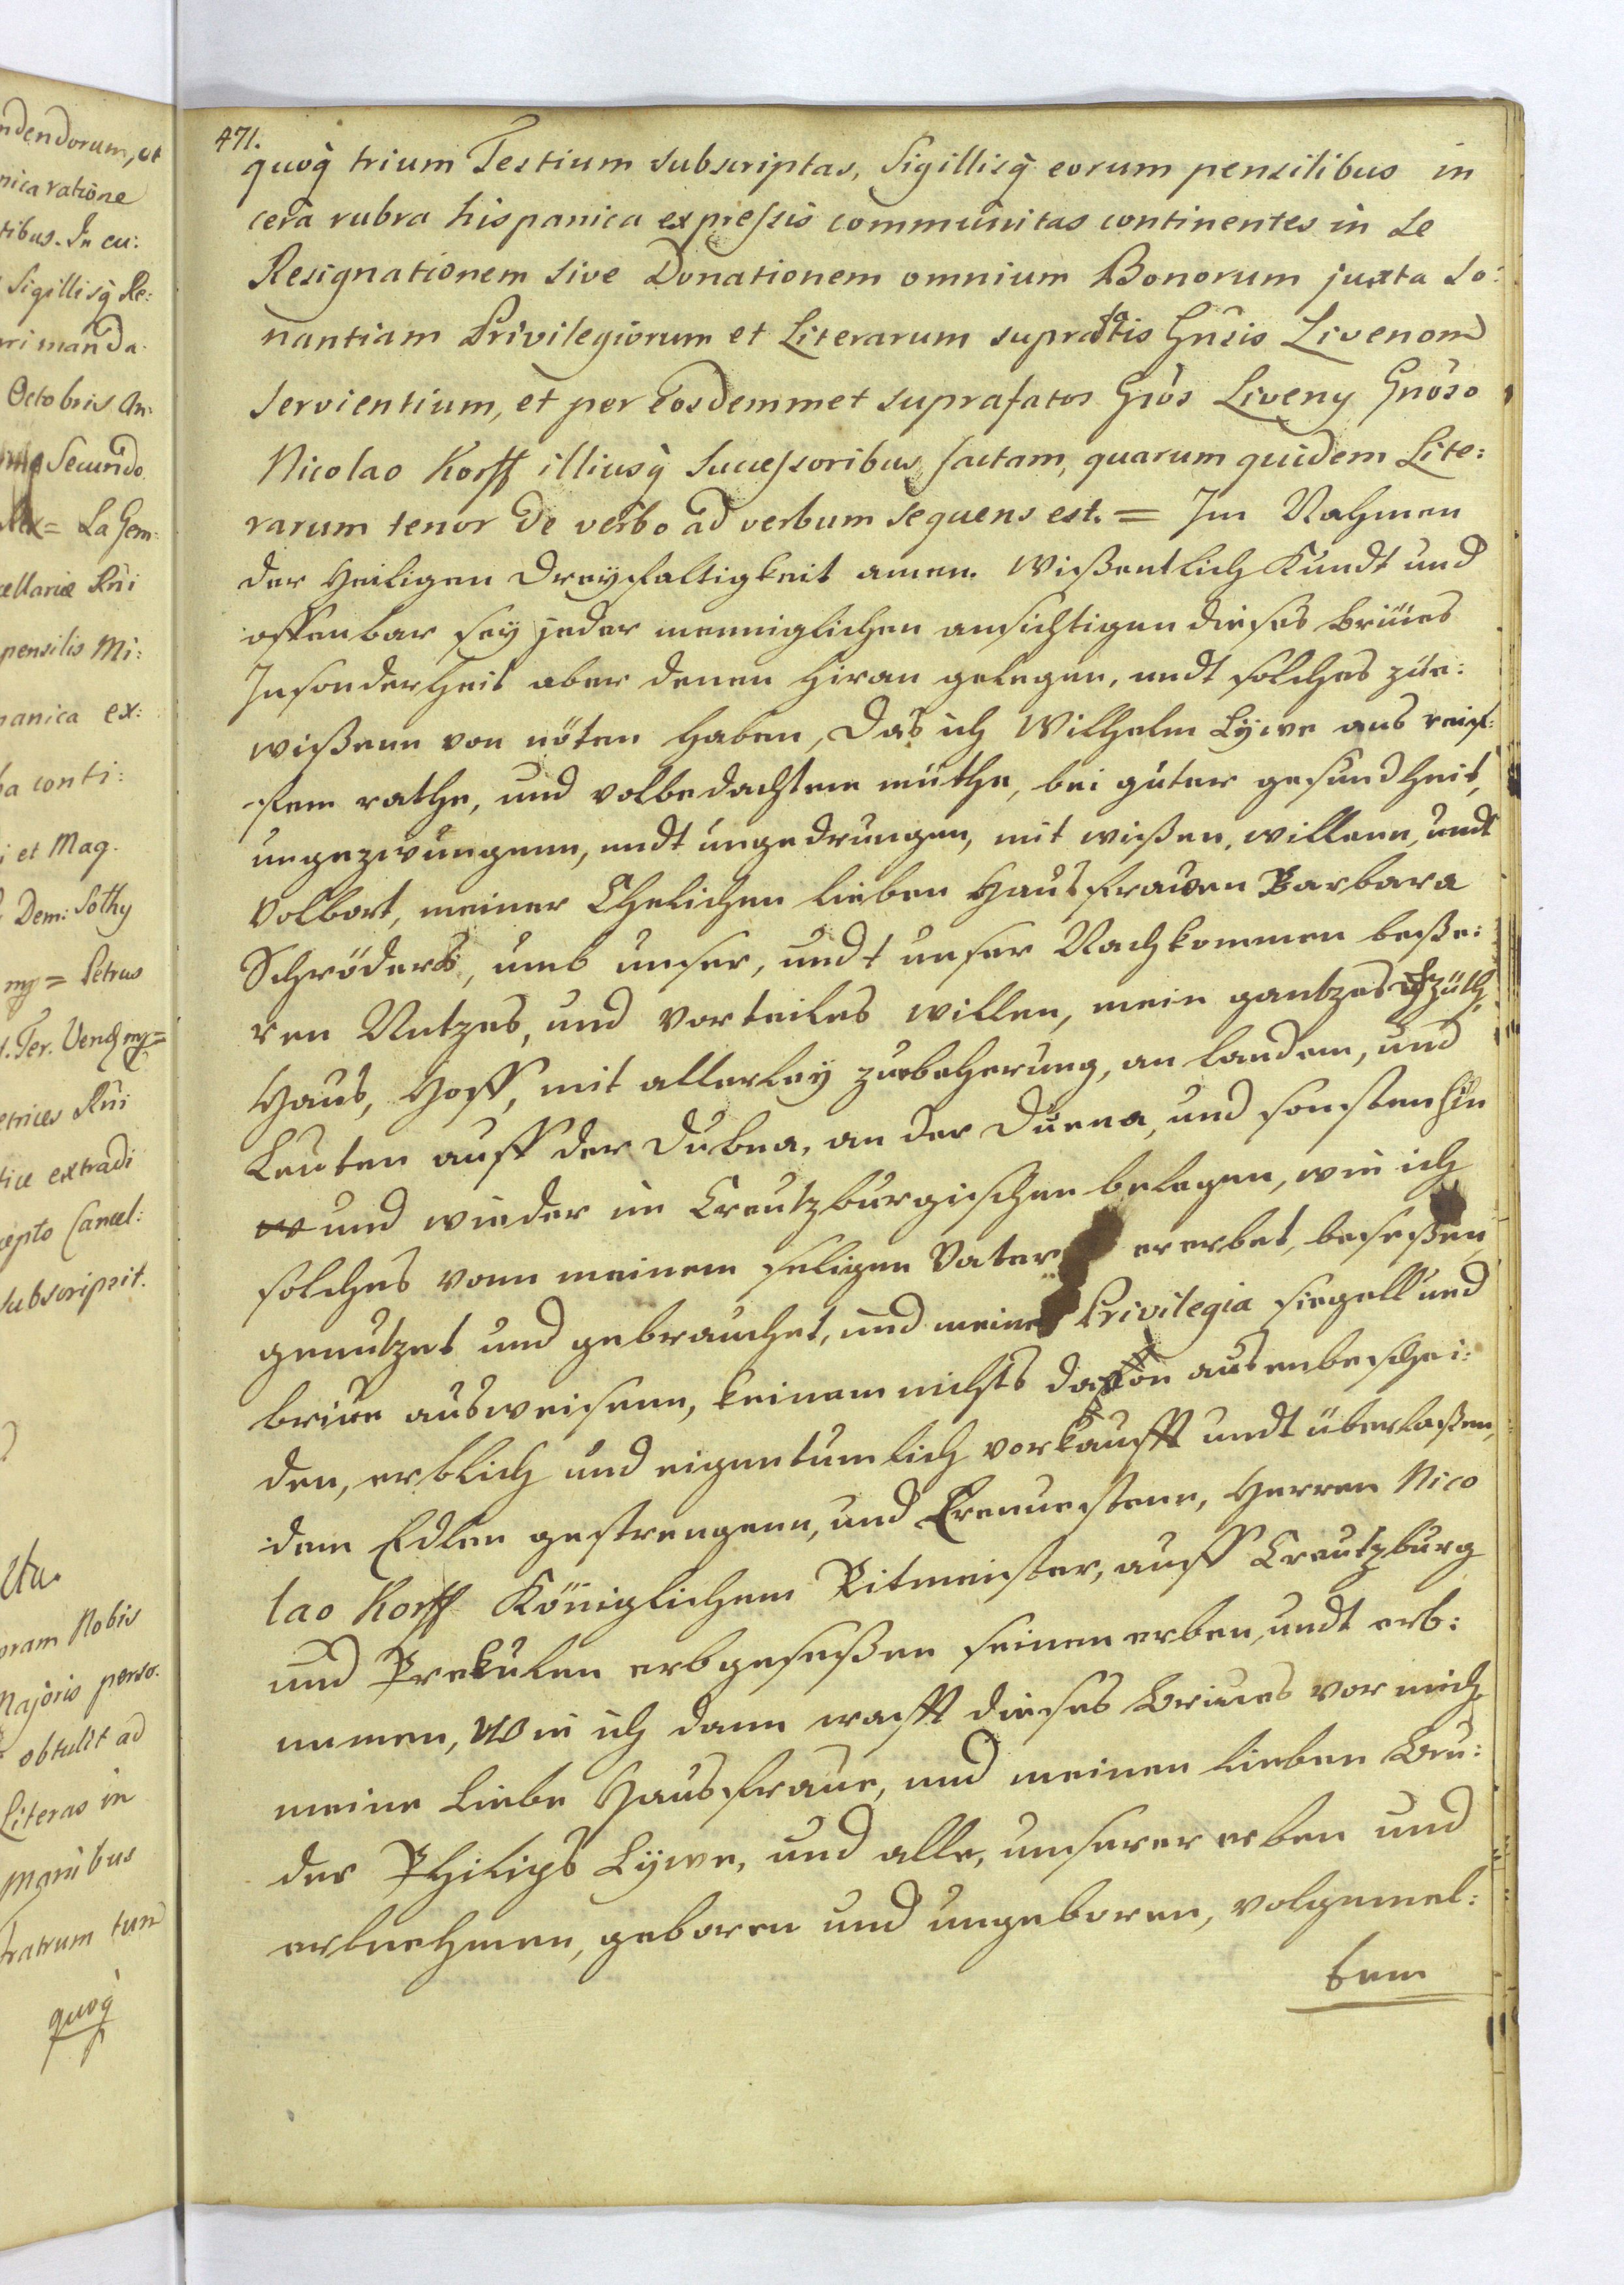 ndendorum, et
nica ratione
tibus. In cu:
Sigillisq̀ Re:
ri manda
Octobris An:
Secundo
Rex = La Gem:
cellariæ Rñi
pensilis Mi:
panica ex:
ba conti:
i et Mag.
Dem: Sothy
mp = Petrus
etrices Rñi
tice extradi
cepto Cancel:
subscripsit.
oram Nobis
Majoris perso.
obtulit ad
Literas in
Manibus
tratrum tum
quoq̀
471.
quoq̀ trium Testium subscriptas, Sigillisq̀ eorum pensilibus in
cera rubra hispanica expressis communitas continentes in se
Resignationem sive Donationem omnium Bonorum juxta so:
nantiam Privilegiorum et Literarum supradtis Gnsis Livenom
servientium, et per eosdemmet suprafatos Gños Liveny Gnoso
Nicolao Korff illiusq̀ Successoribus factam, quarum quidem Lite:
rarum tenor de verbo ad verbum sequens est. = Im Nahmen
der Heiligen Dreyfaltigkeit amen. Wißentlich Kundt und
offenbar sey jeder menniglichen ansichtigen dieses briues
Insonderheit aber denen hiran gelegen, undt solches zue:
wißenn von nöten haben, Das ich Wilhelm Lÿwe aus reif:
fem rathe, und volbedachtem muthe, bei guter gesundheit,
ungezwungenn, undt ungedrungen, mit wißen, willenn, undt
Volbort, meiner Ehelichen lieben Hausfrawen Barbara
Schröders, umb unser, undt unser Nachkommen beße:
ren Nutzes, und vorteiles willen, mein gantzes
Haus, Hoff, mit allerley zuebeherung, an landem, und
Leuten auff der Dubna, an der Duena, und sonsten hin
und wieder im Creutzburgischen belegen, wie ich
solches vonn meinem seligen Vater ererbet, beseßen,
genutzet und gebrauchet, und meine Privilegia siegell und
briue ausweisenn, keinem nichts dauon ausenbeschei:
den, erblich und eigentumlich vorkaufft undt überlaßen,
dem Edlen gestrengenn, und Erenuestenn, Herren Nico
lao Korff Königlichem Ritmeister, auff Creutzburg
und Prekulen erbgeseßen seinen erben, undt erb:
nemen, Wie ich dann crafft dieses briues vor mich
meine liebe Hausfraue, und meinen lieben bru:
der Philips Lÿwe, und alle, unserer erben und
erbnehmen, geboren und ungeboren, volgemel:
tem